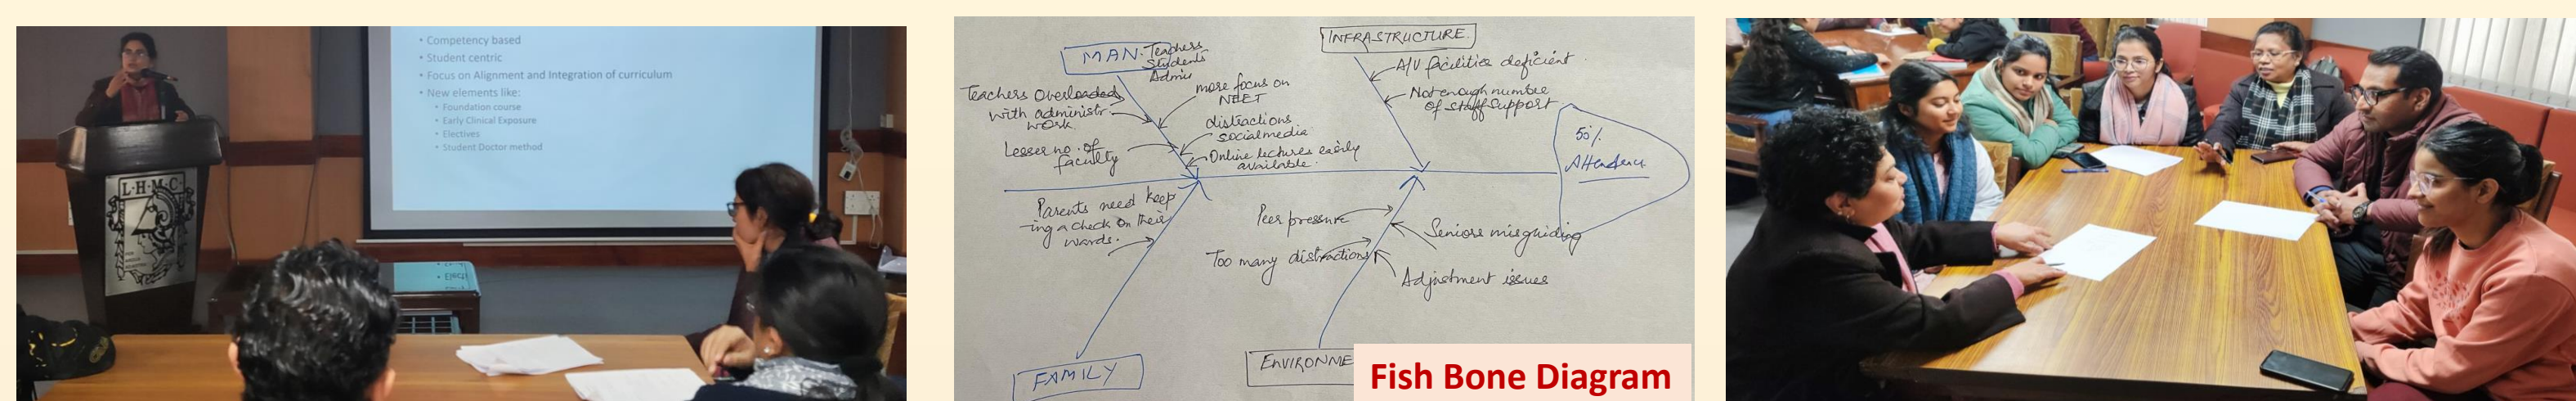 • Competency based
• Student centric
• Focus on Alignment and Integration of curriculum
• New elements like:
• Foundation course
• Early Clinical Exposure
• Electives
• Student Doctor method
L·H·M·C
• Electi
MAN: Teachers
Students
Admin
Teachers Overloaded
with administr.
work.
Lesser no. of
faculty
more focus on
NEET
distractions
social media
Online lectures easily
available.
INFRASTRUCTURE
A/V facilities deficient.
Not enough number
of staff support
50%
Attendance
Parents need keep
-ing a check on their
wards.
FAMILY
Peer pressure
Too many distractions
Seniors misguiding
Adjustment issues
ENVIRONME
Fish Bone Diagram